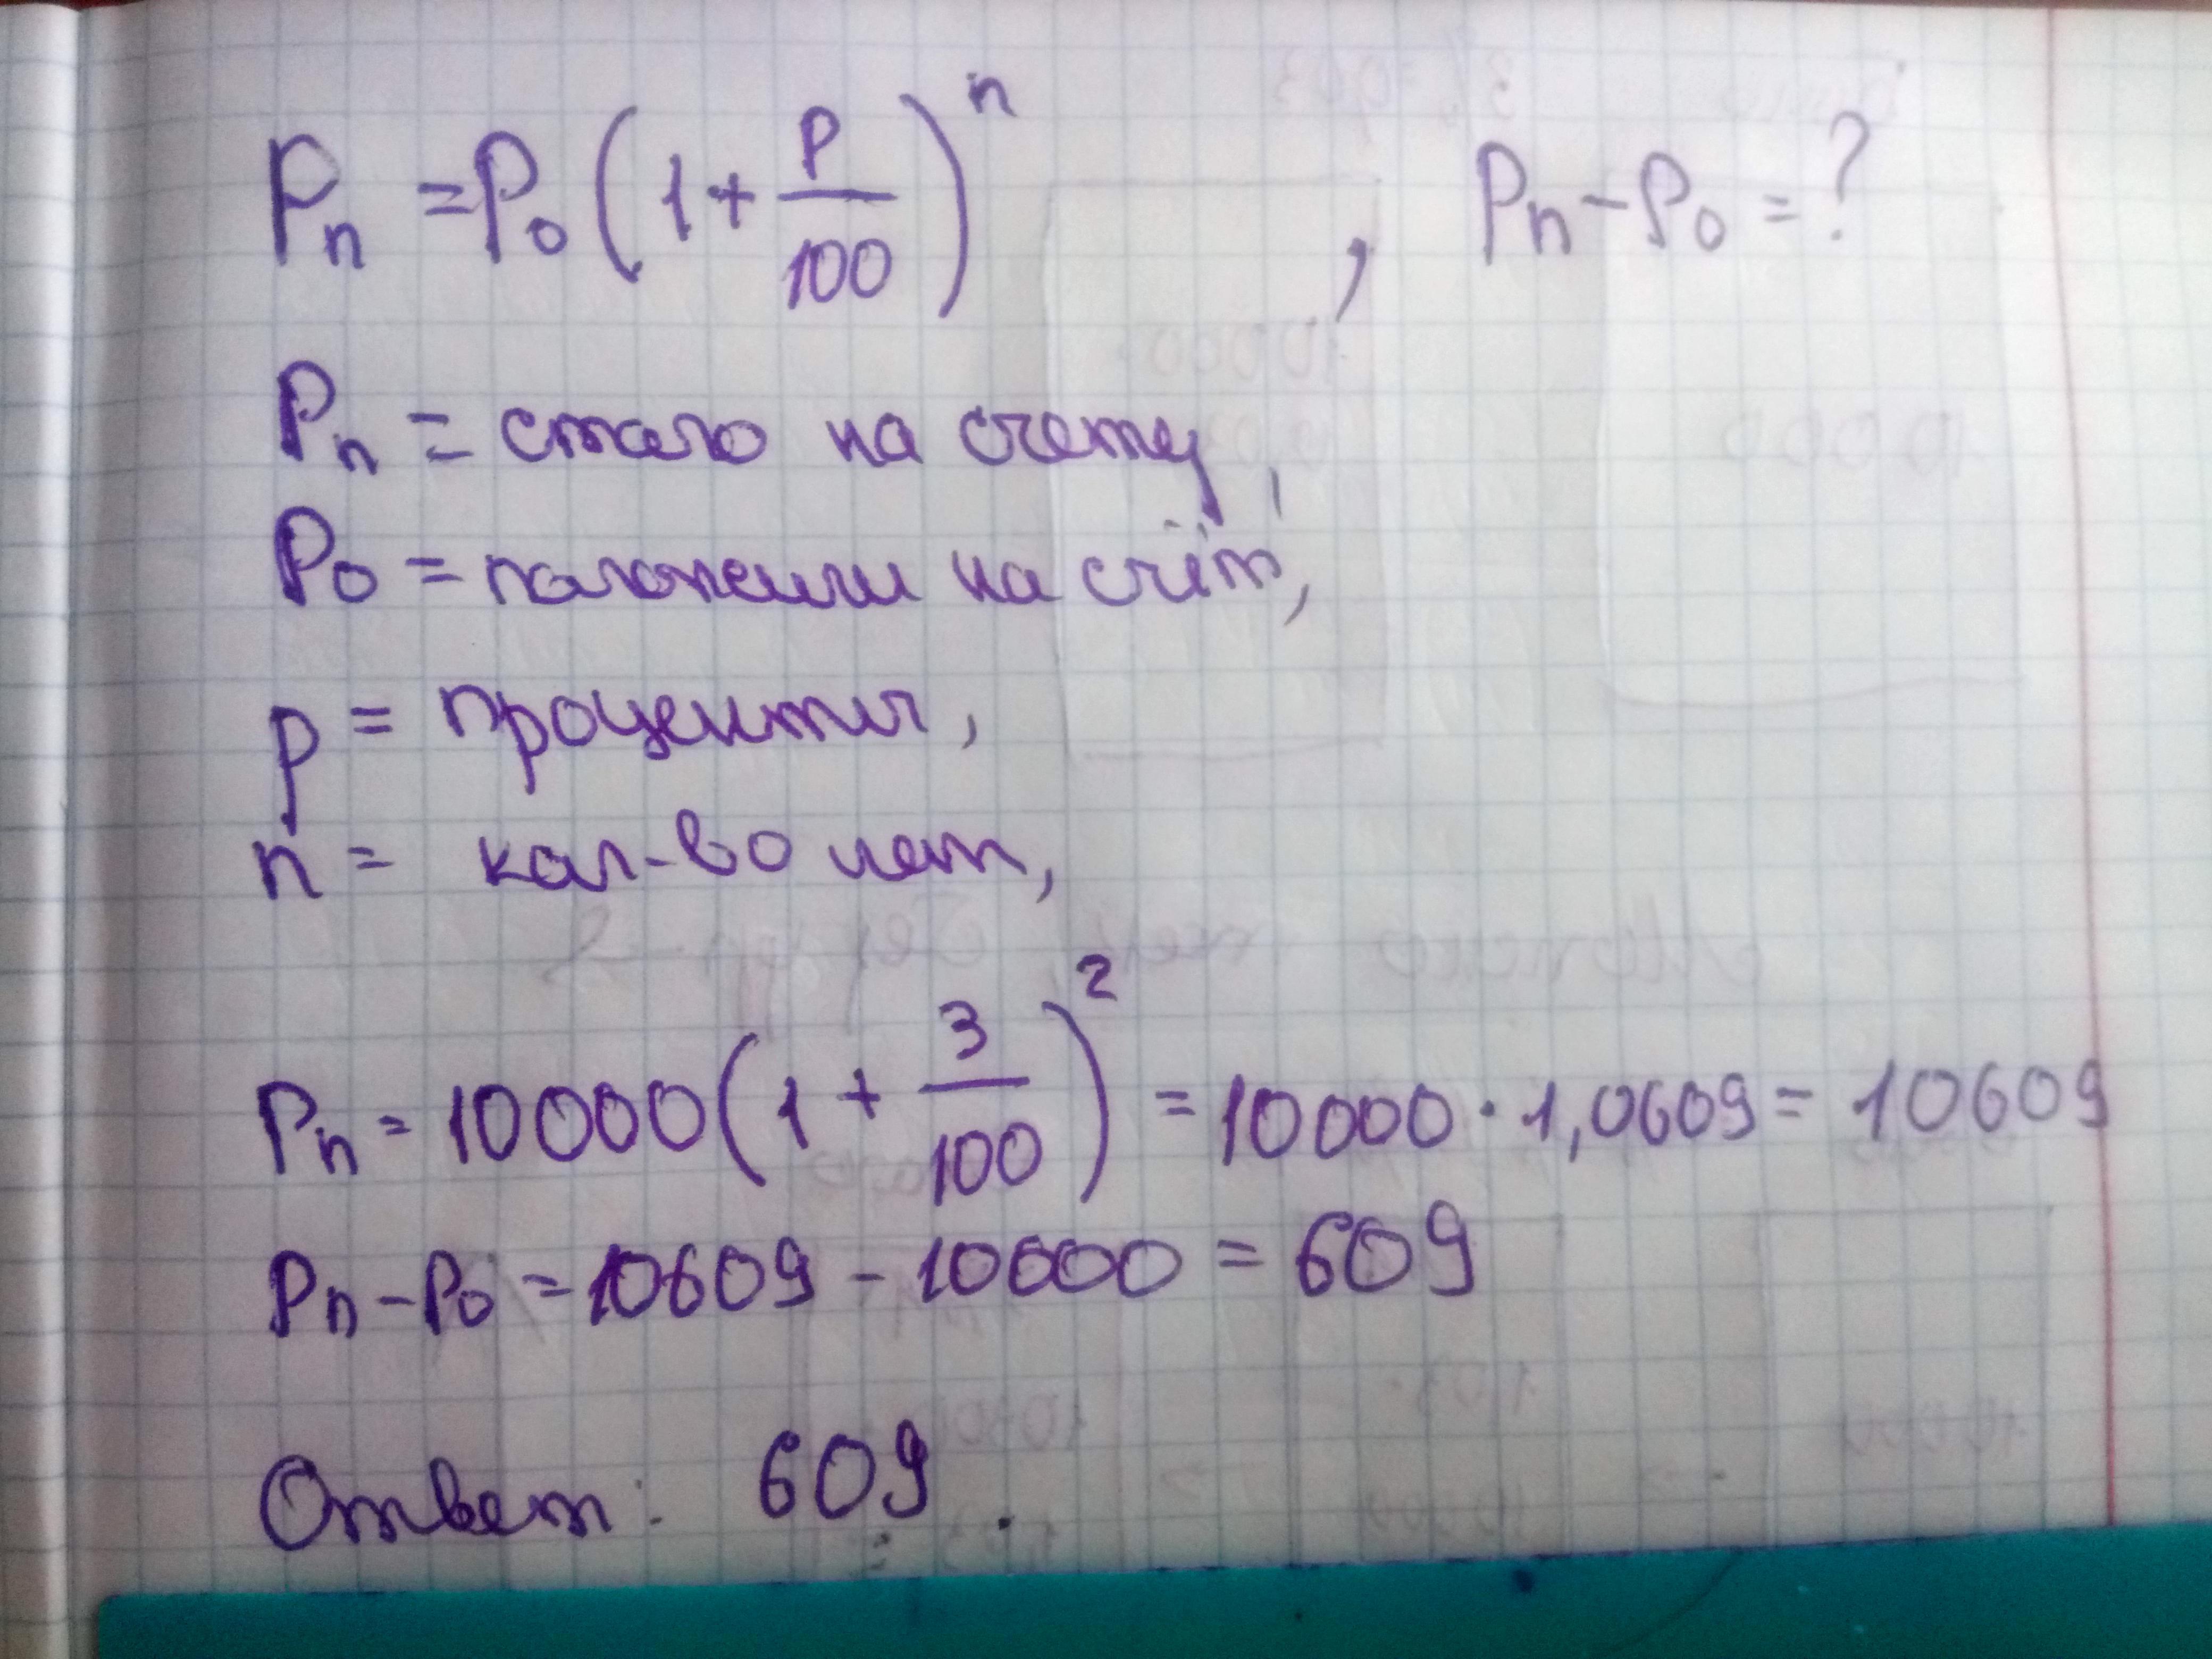 Pn = P0 (1 + p/100)^n , Pn - P0 = ?
Pn = стало на счету,
P0 = положили на счёт,
p = проценты,
n = кол-во лет,
Pn = 10000 (1 + 3/100)^2 = 10000 · 1,0609 = 10609
Pn - P0 = 10609 - 10000 = 609
Ответ: 609.